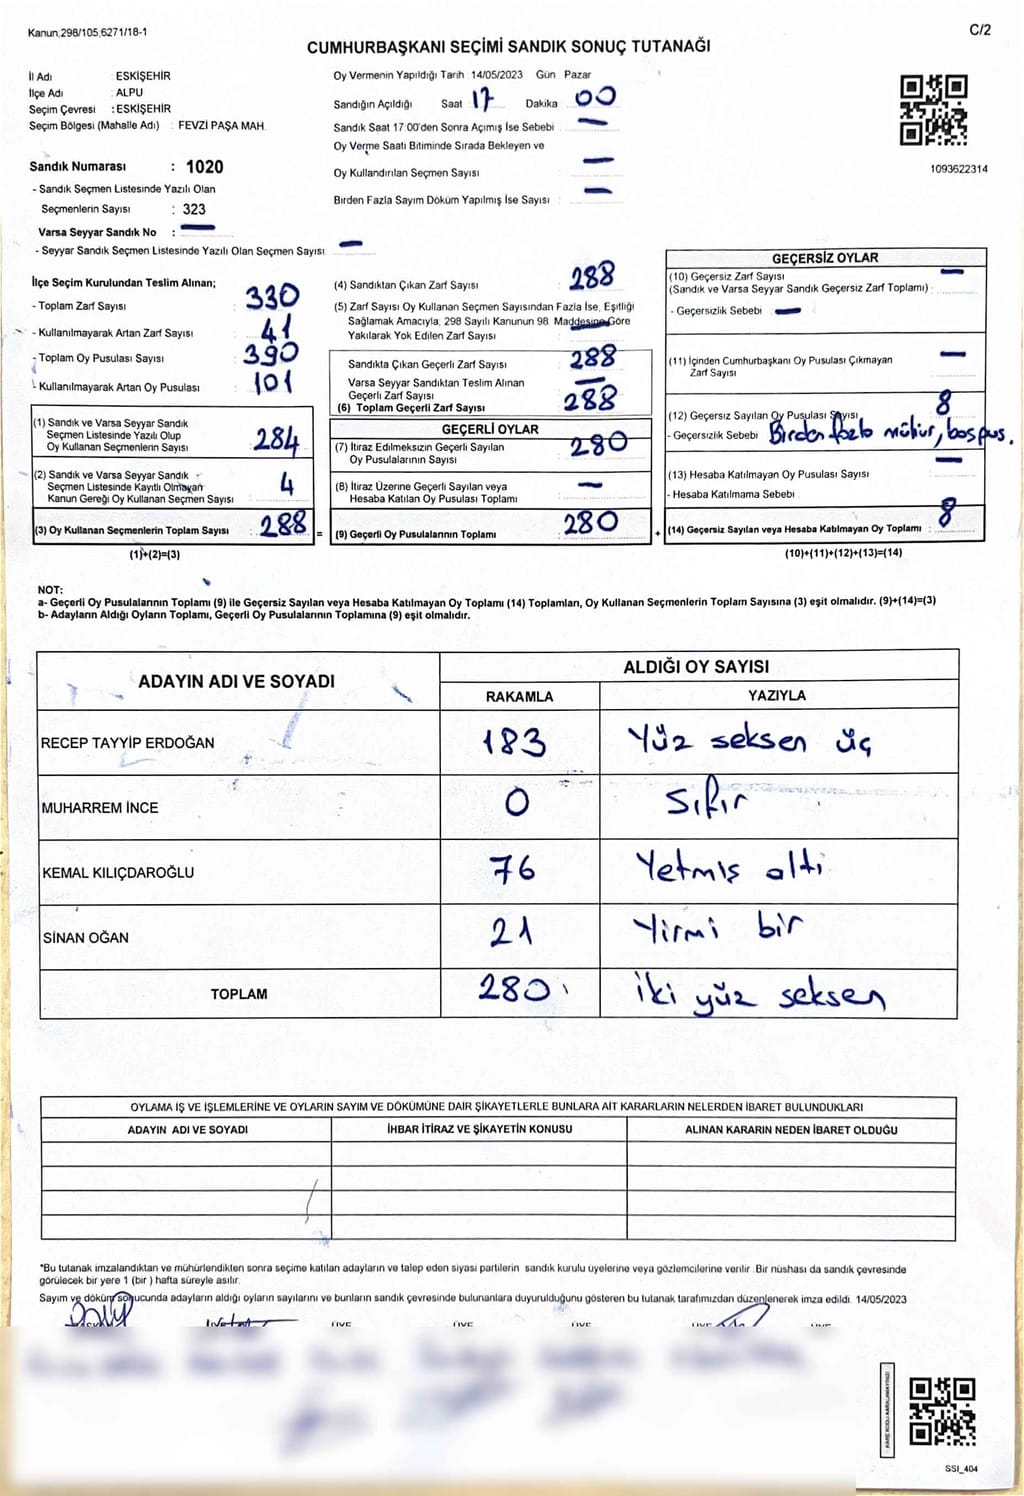 Kanun,298/105,6271/18-1
C/2
CUMHURBAŞKANI SEÇİMİ SANDIK SONUÇ TUTANAĞI
İl Adı : ESKİŞEHİR
İlçe Adı : ALPU
Seçim Çevresi : ESKİŞEHİR
Seçim Bölgesi (Mahalle Adı) : FEVZİ PAŞA MAH.
Sandık Numarası : 1020
- Sandık Seçmen Listesinde Yazılı Olan
Seçmenlerin Sayısı : 323
Varsa Seyyar Sandık No : —
- Seyyar Sandık Seçmen Listesinde Yazılı Olan Seçmen Sayısı: —
Oy Vermenin Yapıldığı Tarih : 14/05/2023 Gün Pazar
Sandığın Açıldığı Saat 17 Dakika 00
Sandık Saat 17:00'den Sonra Açımış İse Sebebi : —
Oy Verme Saati Bitiminde Sırada Bekleyen ve
Oy Kullandırılan Seçmen Sayısı : —
Birden Fazla Sayım Döküm Yapılmış İse Sayısı : —
1093622314
İlçe Seçim Kurulundan Teslim Alınan;
- Toplam Zarf Sayısı : 330
- Kullanılmayarak Artan Zarf Sayısı : 41
- Toplam Oy Pusulası Sayısı : 390
- Kullanılmayarak Artan Oy Pusulası : 101
(1) Sandık ve Varsa Seyyar Sandık
Seçmen Listesinde Yazılı Olup
Oy Kullanan Seçmenlerin Sayısı : 284
(2) Sandık ve Varsa Seyyar Sandık
Seçmen Listesinde Kayıtlı Olmayan
Kanun Gereği Oy Kullanan Seçmen Sayısı : 4
(3) Oy Kullanan Seçmenlerin Toplam Sayısı : 288 =
(1)+(2)=(3)
(4) Sandıktan Çıkan Zarf Sayısı : 288
(5) Zarf Sayısı Oy Kullanan Seçmen Sayısından Fazla İse, Eşitliği
Sağlamak Amacıyla, 298 Sayılı Kanunun 98 Maddesine Göre
Yakılarak Yok Edilen Zarf Sayısı : —
Sandıkta Çıkan Geçerli Zarf Sayısı : 288
Varsa Seyyar Sandıktan Teslim Alınan
Geçerli Zarf Sayısı : —
(6) Toplam Geçerli Zarf Sayısı : 288
GEÇERLİ OYLAR
(7) İtiraz Edilmeksizin Geçerli Sayılan
Oy Pusulalarının Sayısı : 280
(8) İtiraz Üzerine Geçerli Sayılan veya
Hesaba Katılan Oy Pusulası Toplamı : —
(9) Geçerli Oy Pusulalarının Toplamı : 280 +
GEÇERSİZ OYLAR
(10) Geçersiz Zarf Sayısı : —
(Sandık ve Varsa Seyyar Sandık Geçersiz Zarf Toplamı) :
- Geçersizlik Sebebi : —
(11) İçinden Cumhurbaşkanı Oy Pusulası Çıkmayan
Zarf Sayısı : —
(12) Geçersiz Sayılan Oy Pusulası Sayısı : 8
- Geçersizlik Sebebi : Birden fazla mühür, boş pus.
(13) Hesaba Katılmayan Oy Pusulası Sayısı : —
- Hesaba Katılmama Sebebi :
(14) Geçersiz Sayılan veya Hesaba Katılmayan Oy Toplamı : 8
(10)+(11)+(12)+(13)=(14)
NOT:
a- Geçerli Oy Pusulalarının Toplamı (9) ile Geçersiz Sayılan veya Hesaba Katılmayan Oy Toplamı (14) Toplamları, Oy Kullanan Seçmenlerin Toplam Sayısına (3) eşit olmalıdır. (9)+(14)=(3)
b- Adayların Aldığı Oyların Toplamı, Geçerli Oy Pusulalarının Toplamına (9) eşit olmalıdır.
ADAYIN ADI VE SOYADI ALDIĞI OY SAYISI
RAKAMLA YAZIYLA
RECEP TAYYİP ERDOĞAN 183 Yüz seksen üç
MUHARREM İNCE 0 Sıfır
KEMAL KILIÇDAROĞLU 76 Yetmiş altı
SİNAN OĞAN 21 Yirmi bir
TOPLAM 280 İki yüz seksen
OYLAMA İŞ VE İŞLEMLERİNE VE OYLARIN SAYIM VE DÖKÜMÜNE DAİR ŞİKAYETLERLE BUNLARA AİT KARARLARIN NELERDEN İBARET BULUNDUKLARI
ADAYIN ADI VE SOYADI İHBAR İTİRAZ VE ŞİKAYETİN KONUSU ALINAN KARARIN NEDEN İBARET OLDUĞU
*Bu tutanak imzalandıktan ve mühürlendikten sonra seçime katılan adayların ve talep eden siyasi partilerin sandık kurulu üyelerine veya gözlemcilerine verilir. Bir nüshası da sandık çevresinde
görülecek bir yere 1 (bir) hafta süreyle asılır.
Sayım ve döküm sonucunda adayların aldığı oyların sayılarını ve bunların sandık çevresinde bulunanlara duyurulduğunu gösteren bu tutanak tarafımızdan düzenlenerek imza edildi. 14/05/2023
ÜYE ÜYE ÜYE ÜYE
KARE KODU KARALAMAYINIZ!
SSI_404